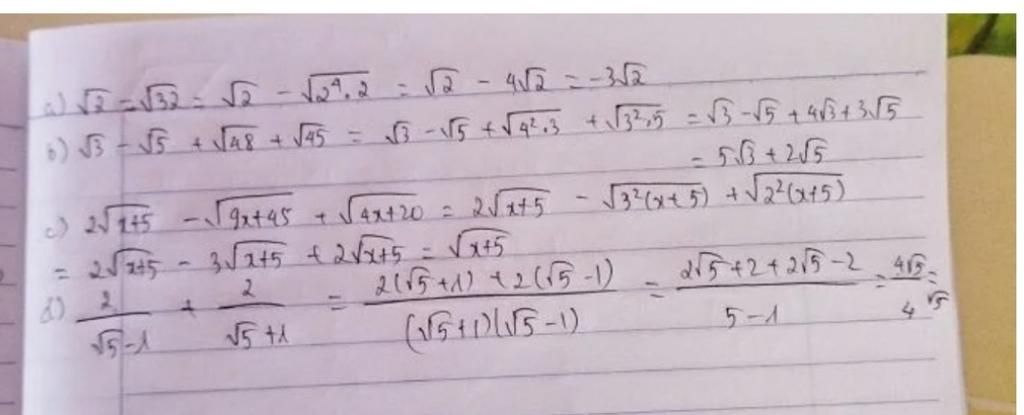 a) √2 = √32 = √2 - √2⁴.2 = √2 - 4√2 = -3√2
b) √3 - √5 + √48 + √45 = √3 - √5 + √4².3 + √3².5 = √3 - √5 + 4√3 + 3√5
= 5√3 + 2√5
c) 2√x+5 - √9x+45 + √4x+20 = 2√x+5 - √3²(x+5) + √2²(x+5)
= 2√x+5 - 3√x+5 + 2√x+5 = √x+5
d) 2/(√5-1) + 2/(√5+1) = (2(√5+1) + 2(√5-1))/((√5+1)(√5-1)) = (2√5+2+2√5-2)/(5-1) = 4√5/4 = √5